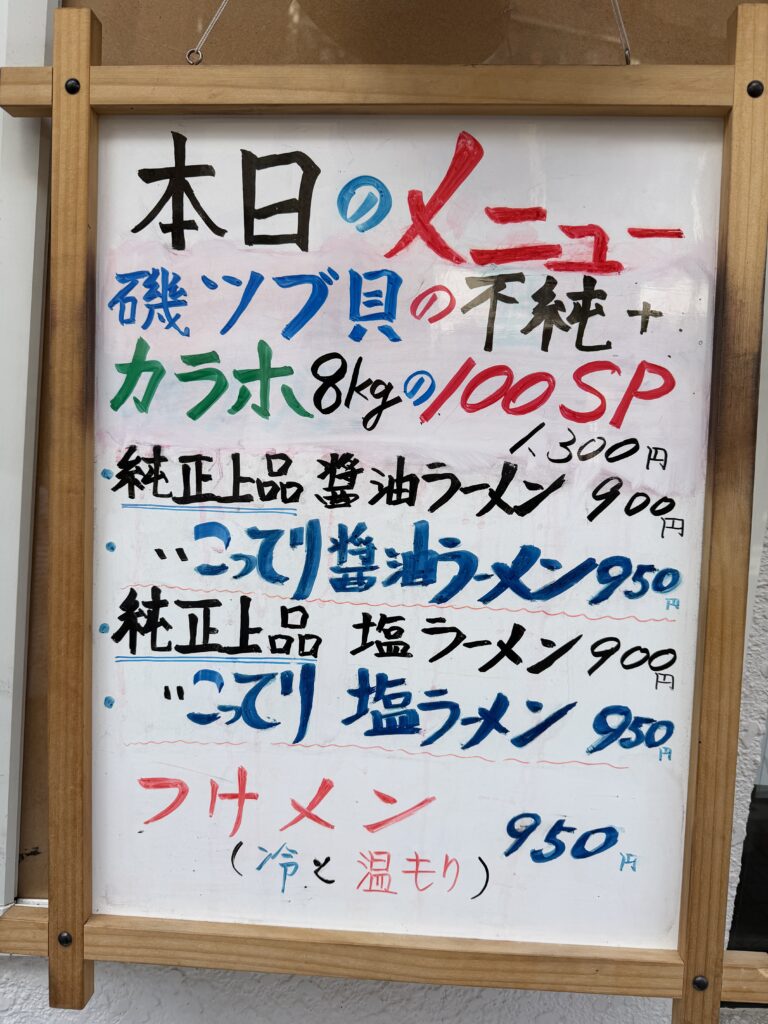 本日のメニュー
磯ツブ貝の不純+
カラホ8kgの100SP
1,300円
・純正上品 醤油ラーメン 900円
・〃こってり醤油ラーメン950円
・純正上品 塩ラーメン 900円
・〃こってり 塩ラーメン 950円
つけメン 950円
(冷と温もり)